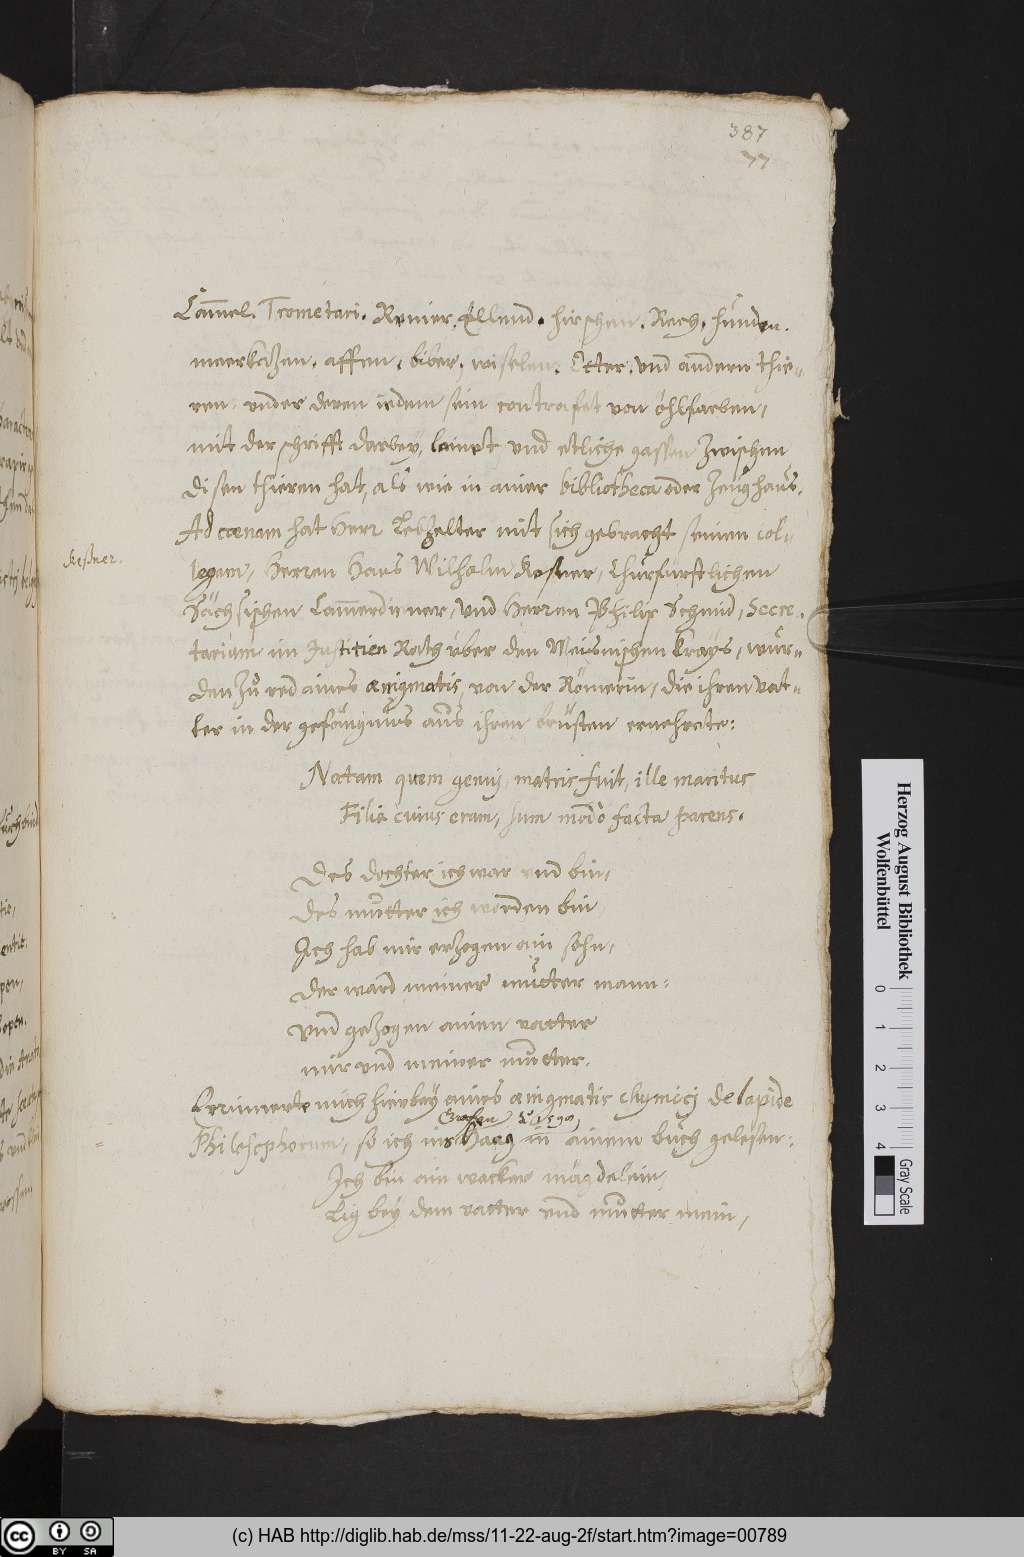 387
77
Cam̄el. Trometari. Renier. Ellend. hirschen. Rech. hunden.
meerkazen. affen. biber. wiselen. Otter. vnd andern thie-
ren. vnder deren iedem sein contrafet von öhlfarben,
mit der schrifft darbey, lainet vnd etliche gassen zwischen
disen thieren hat, als wie in ainer bibliotheca oder Zeughaus.
Ad cœnam hat Herr Lebzelter mit sich gebracht seinen col-
legam, Herren Hans Wilhalm Keßner, Churfürstlichen
Keßner.
Sächsischen Cam̄erdiener, vnd Herren Philip Schmid, Secre-
tarium im Justitien Rath über den Meisnischen Krays, wur-
den zu red aines ænigmatis von der Römerin, die ihren vat-
ter in der gefängnus aus ihren brüsten ernehrete:
Natam quem genui, matris fuit, ille maritus
Filia cuius eram, sum modò facta parens.
Des dochter ich war vnd bin,
Des mutter ich worden bin
Ich hab mir erzogen ain sohn,
Der ward meiner mutter mann:
vnd gezogen ainen vatter
mir vnd meiner mutter.
Erinnerte mich hierbey aines ænigmatis chymicj de lapide
Philosophorum, so ich im Haag in ainem buch gelesen:
Ich bin ain wacker mägdelein,
Lig bey dem vatter vnd mutter mein,
Herzog August Bibliothek
Wolfenbüttel
0 1 2 3 4
Gray Scale
cc BY SA
(c) HAB http://diglib.hab.de/mss/11-22-aug-2f/start.htm?image=00789